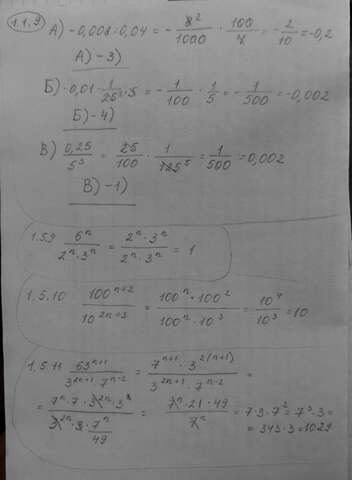 1.1.9
А) -0,008:0,04 = - 8²/1000 · 100/4 = - 2/10 = -0,2
А) - 3)
Б) -0,01 · 1/25² · 5 = - 1/100 · 1/5 = - 1/500 = -0,002
Б) - 4)
В) 0,25/5³ = 25/100 · 1/125⁵ = 1/500 = 0,002
В) - 1)
1.5.9 6ⁿ/(2ⁿ·3ⁿ) = (2ⁿ·3ⁿ)/(2ⁿ·3ⁿ) = 1
1.5.10 100ⁿ⁺²/10²ⁿ⁺³ = (100ⁿ·100²)/(100ⁿ·10³) = 10⁴/10³ = 10
1.5.11 63ⁿ⁺¹/(3²ⁿ⁺¹·7ⁿ⁻²) = (7ⁿ⁺¹·3²⁽ⁿ⁺¹⁾)/(3²ⁿ⁺¹·7ⁿ⁻²) =
= (7ⁿ·7·3²ⁿ·3²)/(3²ⁿ·3·7ⁿ/49) = (7ⁿ·21·49)/7ⁿ = 7·3·7² = 7³·3 =
= 343·3 = 1029